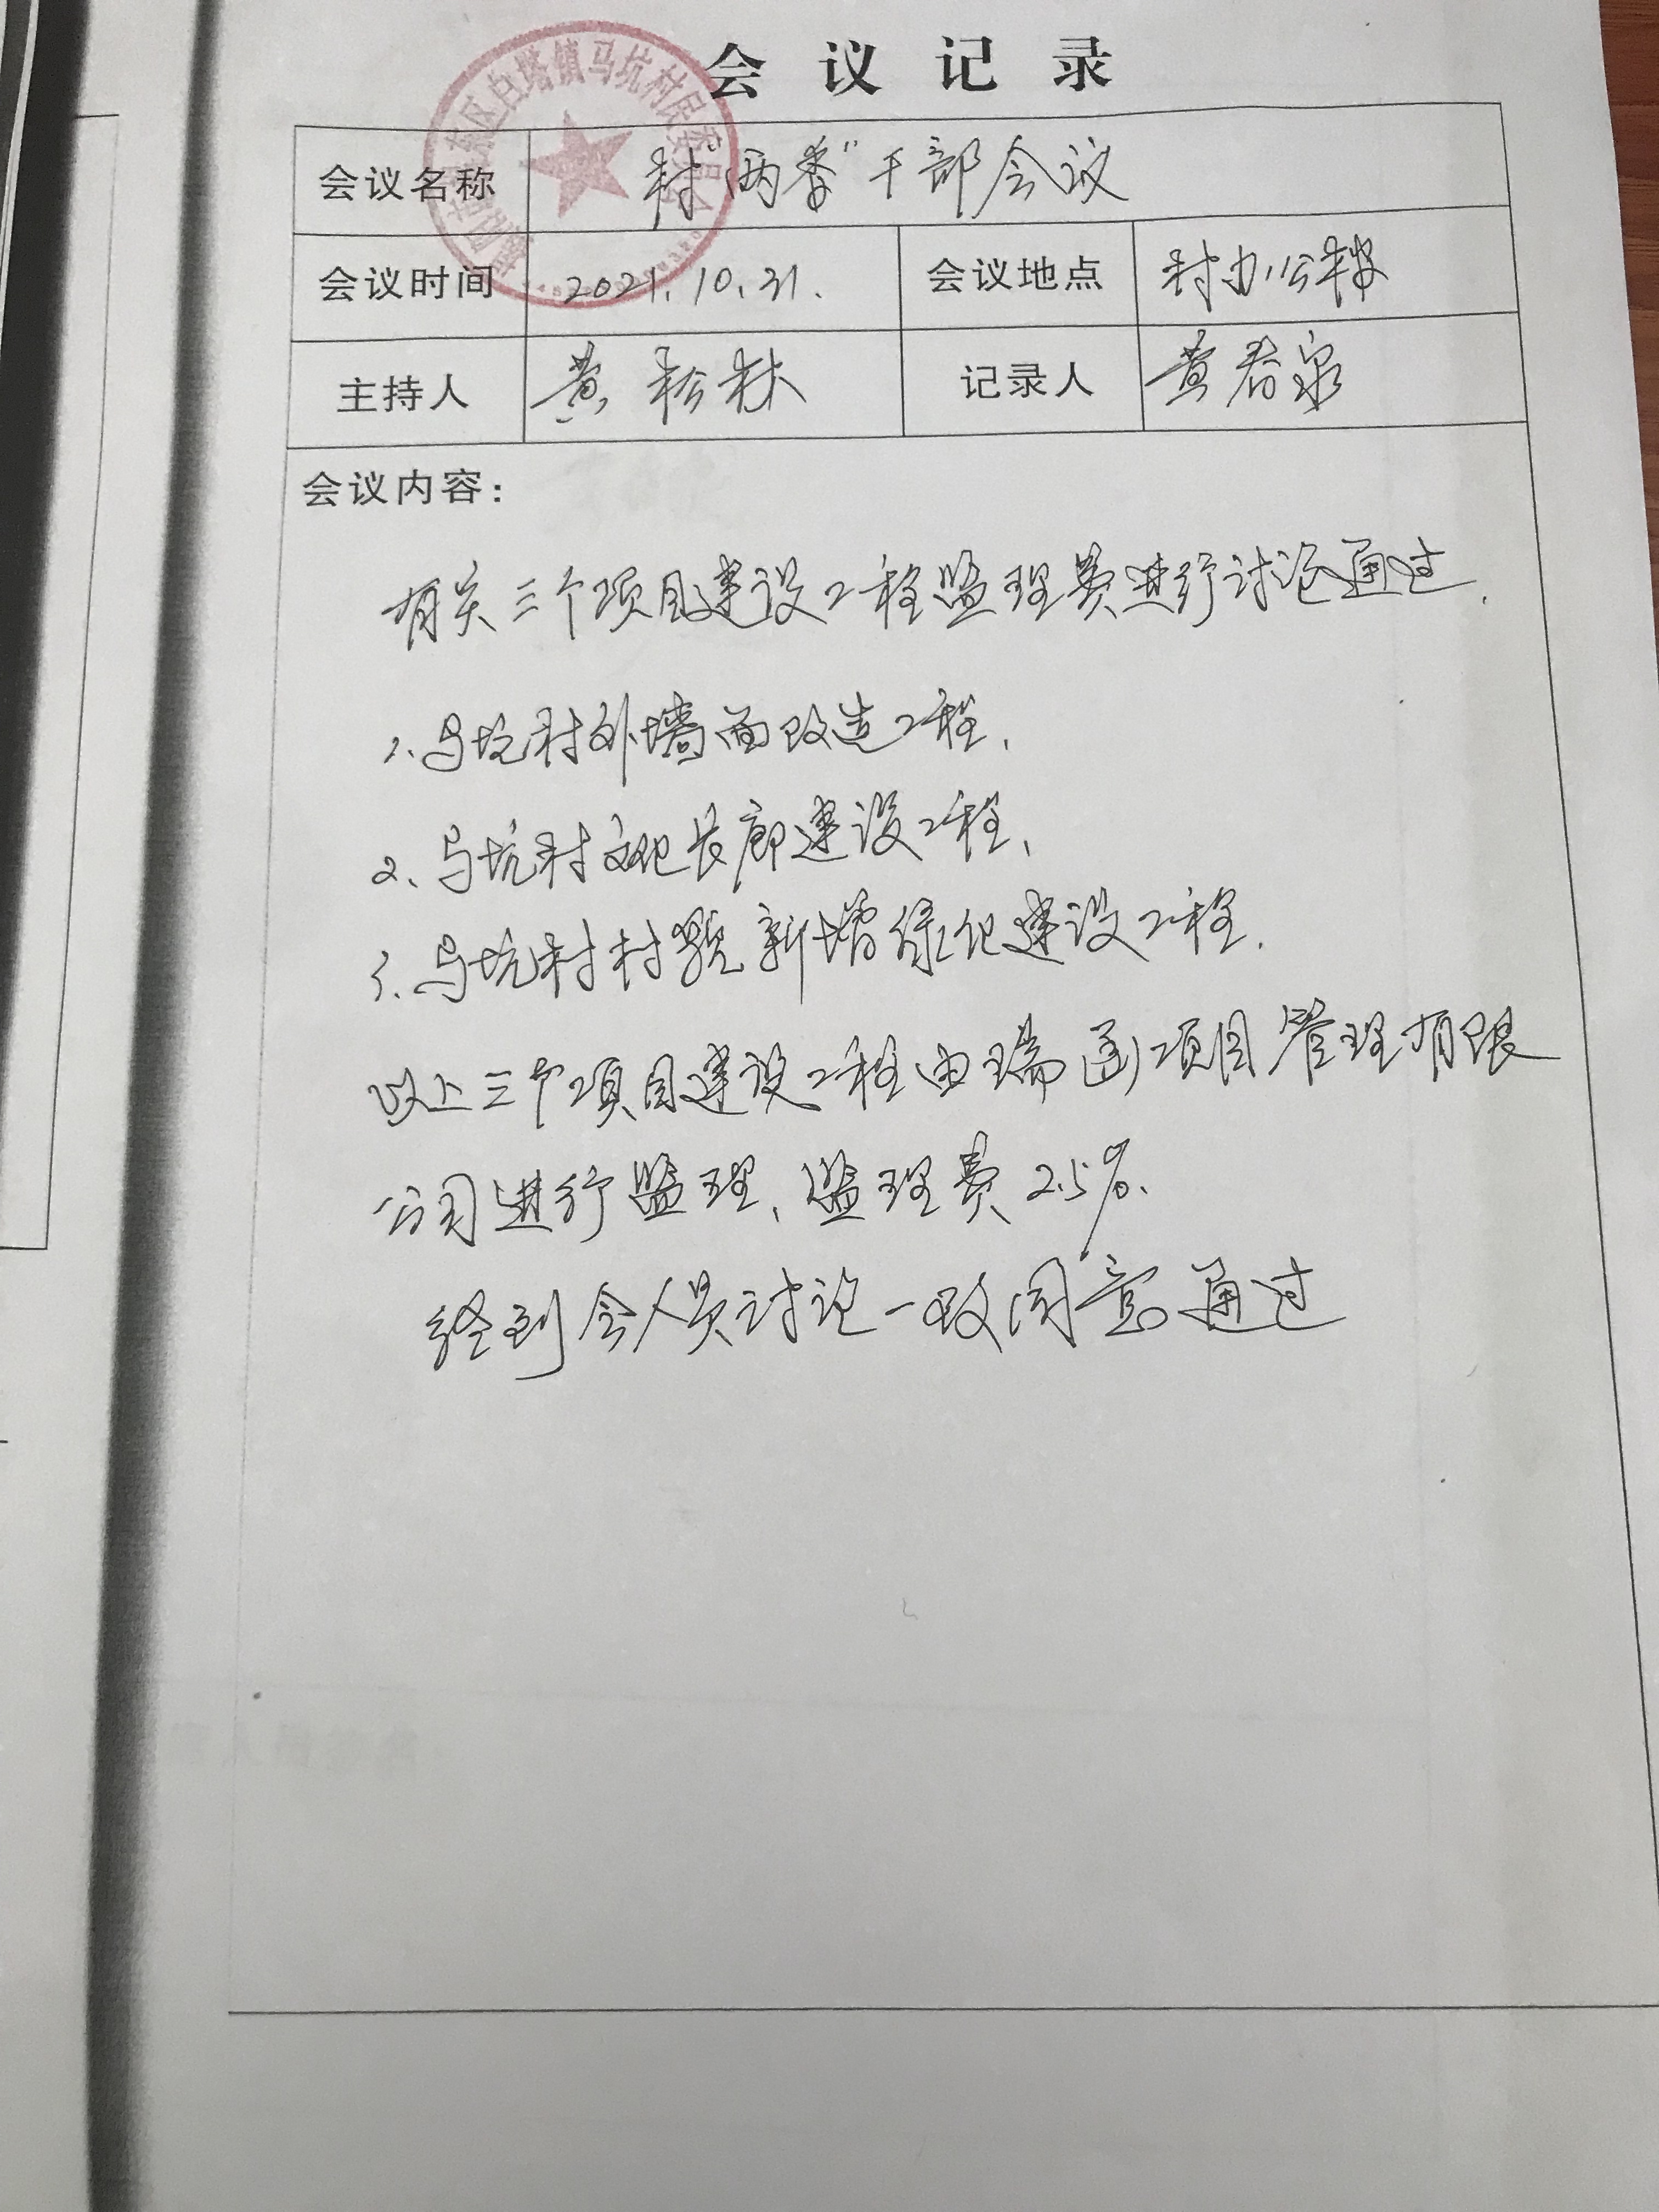 会议记录
揭阳市揭东区白塔镇马坑村民委员会
会议名称 村“两委”干部会议
会议时间 2021.10.31. 会议地点 村办公楼
主持人 黄松林 记录人 黄春泉
会议内容:
有关三个项目建设工程监理费进行讨论通过.
1、马坑村外墙面改造工程、
2、马坑村文化长廊建设工程、
3、马坑村村貌新增绿化建设工程.
以上三个项目建设工程由瑞 项目管理有限
公司进行监理、监理费2.5%.
经到会人员讨论一致同意通过